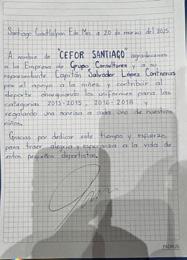 Santiago Cuautlalpan Edo Mex a 20 de marzo del 2025
A nombre de "CEFOR SANTIAGO" agradecemos
a la Empresa de Grupo Consultores y a su
representante Capitán Salvador López Contreras
por el apoyo a la niñez y contribuir al
deporte obsequiando los uniformes para las
categorías 2013-2015, 2016-2018 y
regalando una sonrisa a cada uno de nuestros
niños.
Gracias por dedicar este tiempo y esfuerzo
para traer alegría y esperanza a la vida de
estos pequeños deportistas.